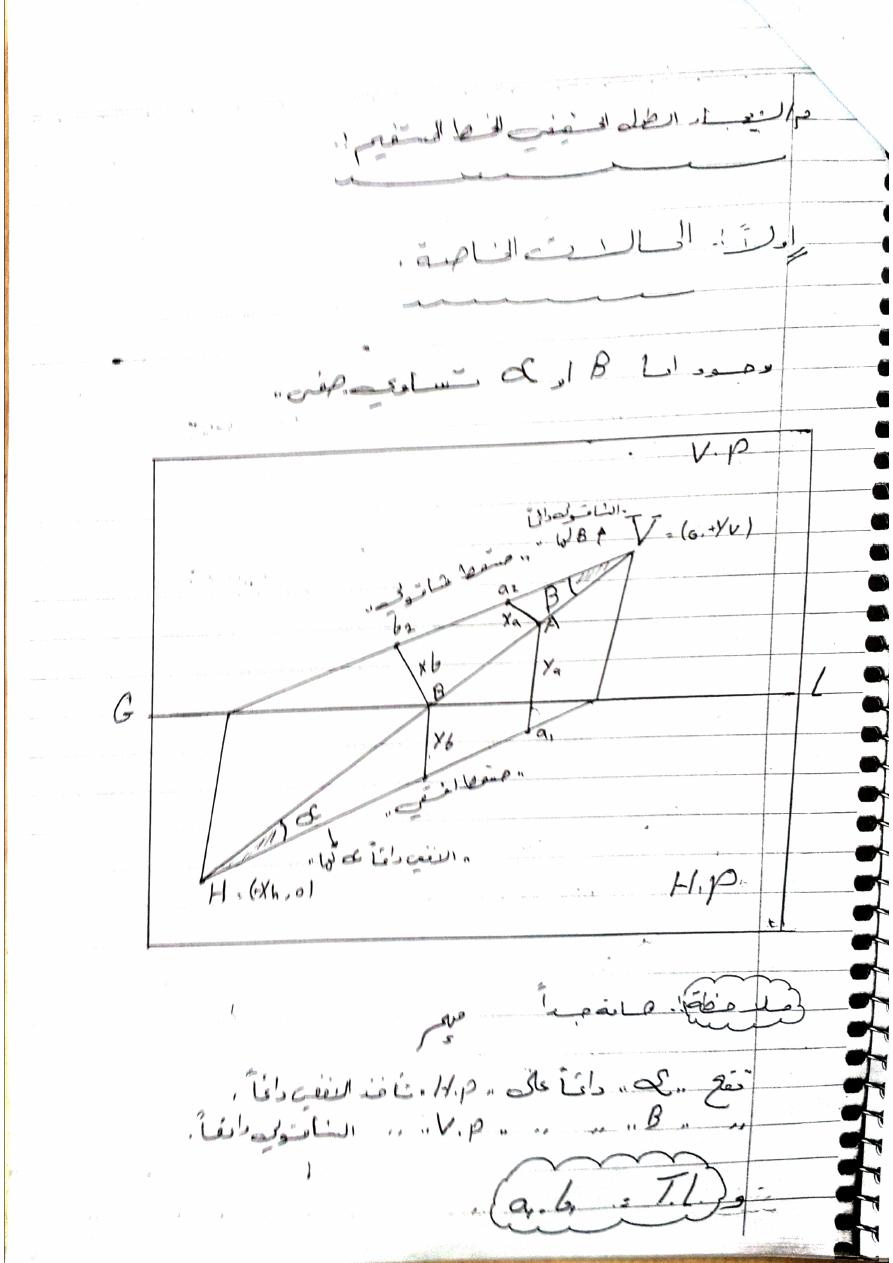 م/ لإيجاد الطول الحقيقي للخط المستقيم :.
اولاً :. الحالات الخاصة .
وجود اما B او α تساوي صفر ..
V.P
الشاقولي دائماً
B لها
V = (0, +Yv)
.. مسقط شاقولي ..
a2
B
b2
Xa
A
Xb
Ya
B
G
L
Yb
a1
.. مسقط افقي ..
α
.. الافقي دائماً α لها ..
H = (+Xh, 0)
H.P.
ملاحظة :. هامة جداً
مهم
تقع .. α .. دائماً على .. H.P. ناخذ الافقي دائماً .
.. .. B .. .. .. V.P .. .. الشاقولي دائماً .
و a1 b1 = T.L.